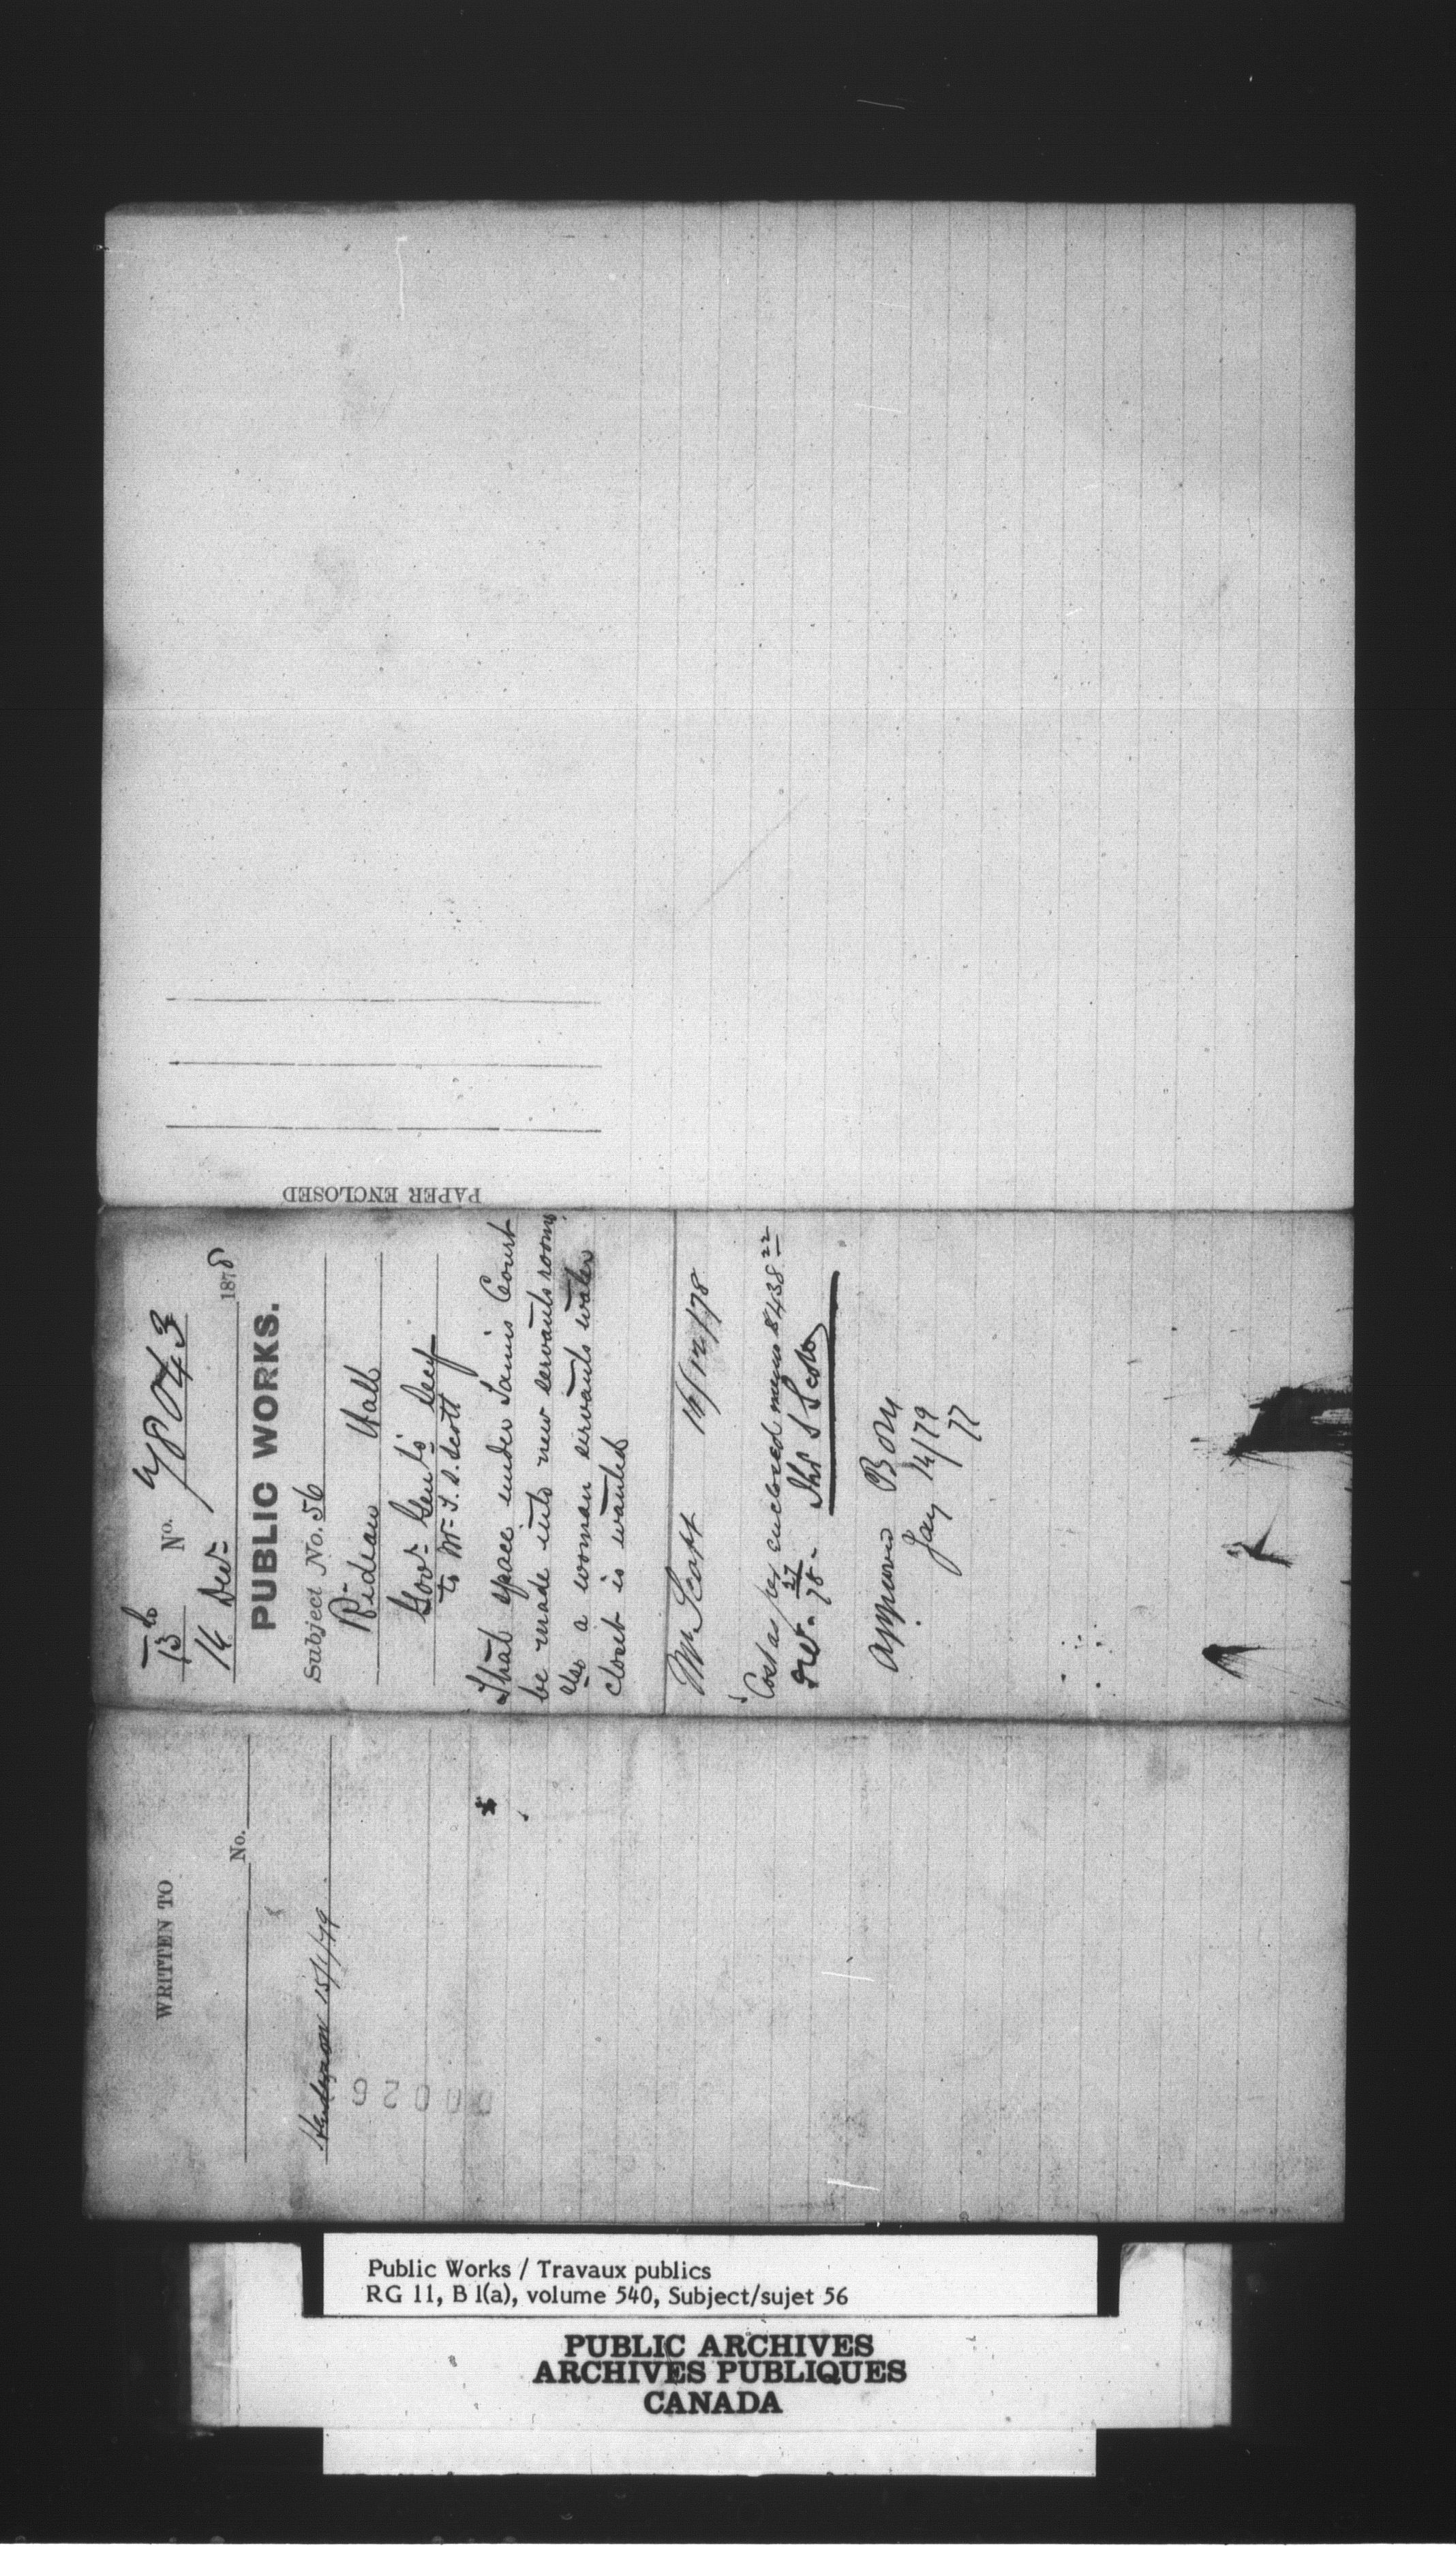 13
No. 78043
14 Decr 1878
PUBLIC WORKS.
Subject No. 56
Rideau Hall
Govr Genl's Secy
to Mr T. S. Scott
That space under Tennis Court
be made into new servants rooms
also a woman servants water
closet is wanted
Mr Scott 16/12/78
Cost as per enclosed memo $438 22
Dec 27 78 Thos S Scott
Approved
Jany 14/79
PAPER ENCLOSED
WRITTEN TO
No.
Henderson 15/1/79
00026
Public Works / Travaux publics
RG 11, B 1(a), volume 540, Subject/sujet 56
PUBLIC ARCHIVES
ARCHIVES PUBLIQUES
CANADA